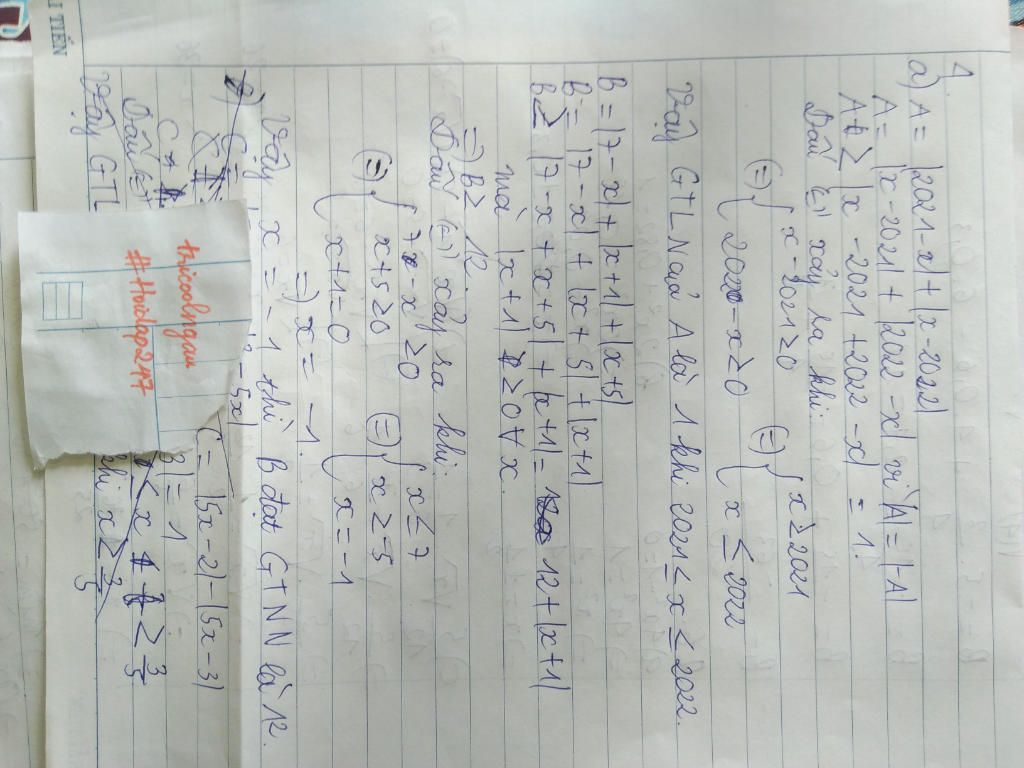 1.
a) A = |2021-x| + |x-2022|
A = |x-2021| + |2022-x| vì |A| = |-A|
A ≥ |x-2021+2022-x| = 1.
Dấu (=) xảy ra khi:
(=) { x-2021≥0 (=) { x≥2021
2022-x≥0 x≤2022
Vậy GTLN của A là 1 khi 2021≤x≤2022.
B = |7-x| + |x+1| + |x+5|
B = |7-x| + |x+5| + |x+1|
B ≥ |7-x+x+5| + |x+1| = 12 + |x+1|
mà |x+1| ≥ 0 ∀ x.
=) B ≥ 12.
Dấu (=) xảy ra khi
(=) { 7-x≥0 (=) { x≤7
x+5≥0 x≥-5
x+1=0 x=-1
=) x = -1.
Vậy x = -1 thì B đạt GTNN là 12.
C = - 5x| C = |5x-2| - |5x-3|
C = 1
Dấu (=) ≥ 3/5
Vậy GTL khi x ≥ 3/5
thicoolngau
#Hoidap247
I TIẾN